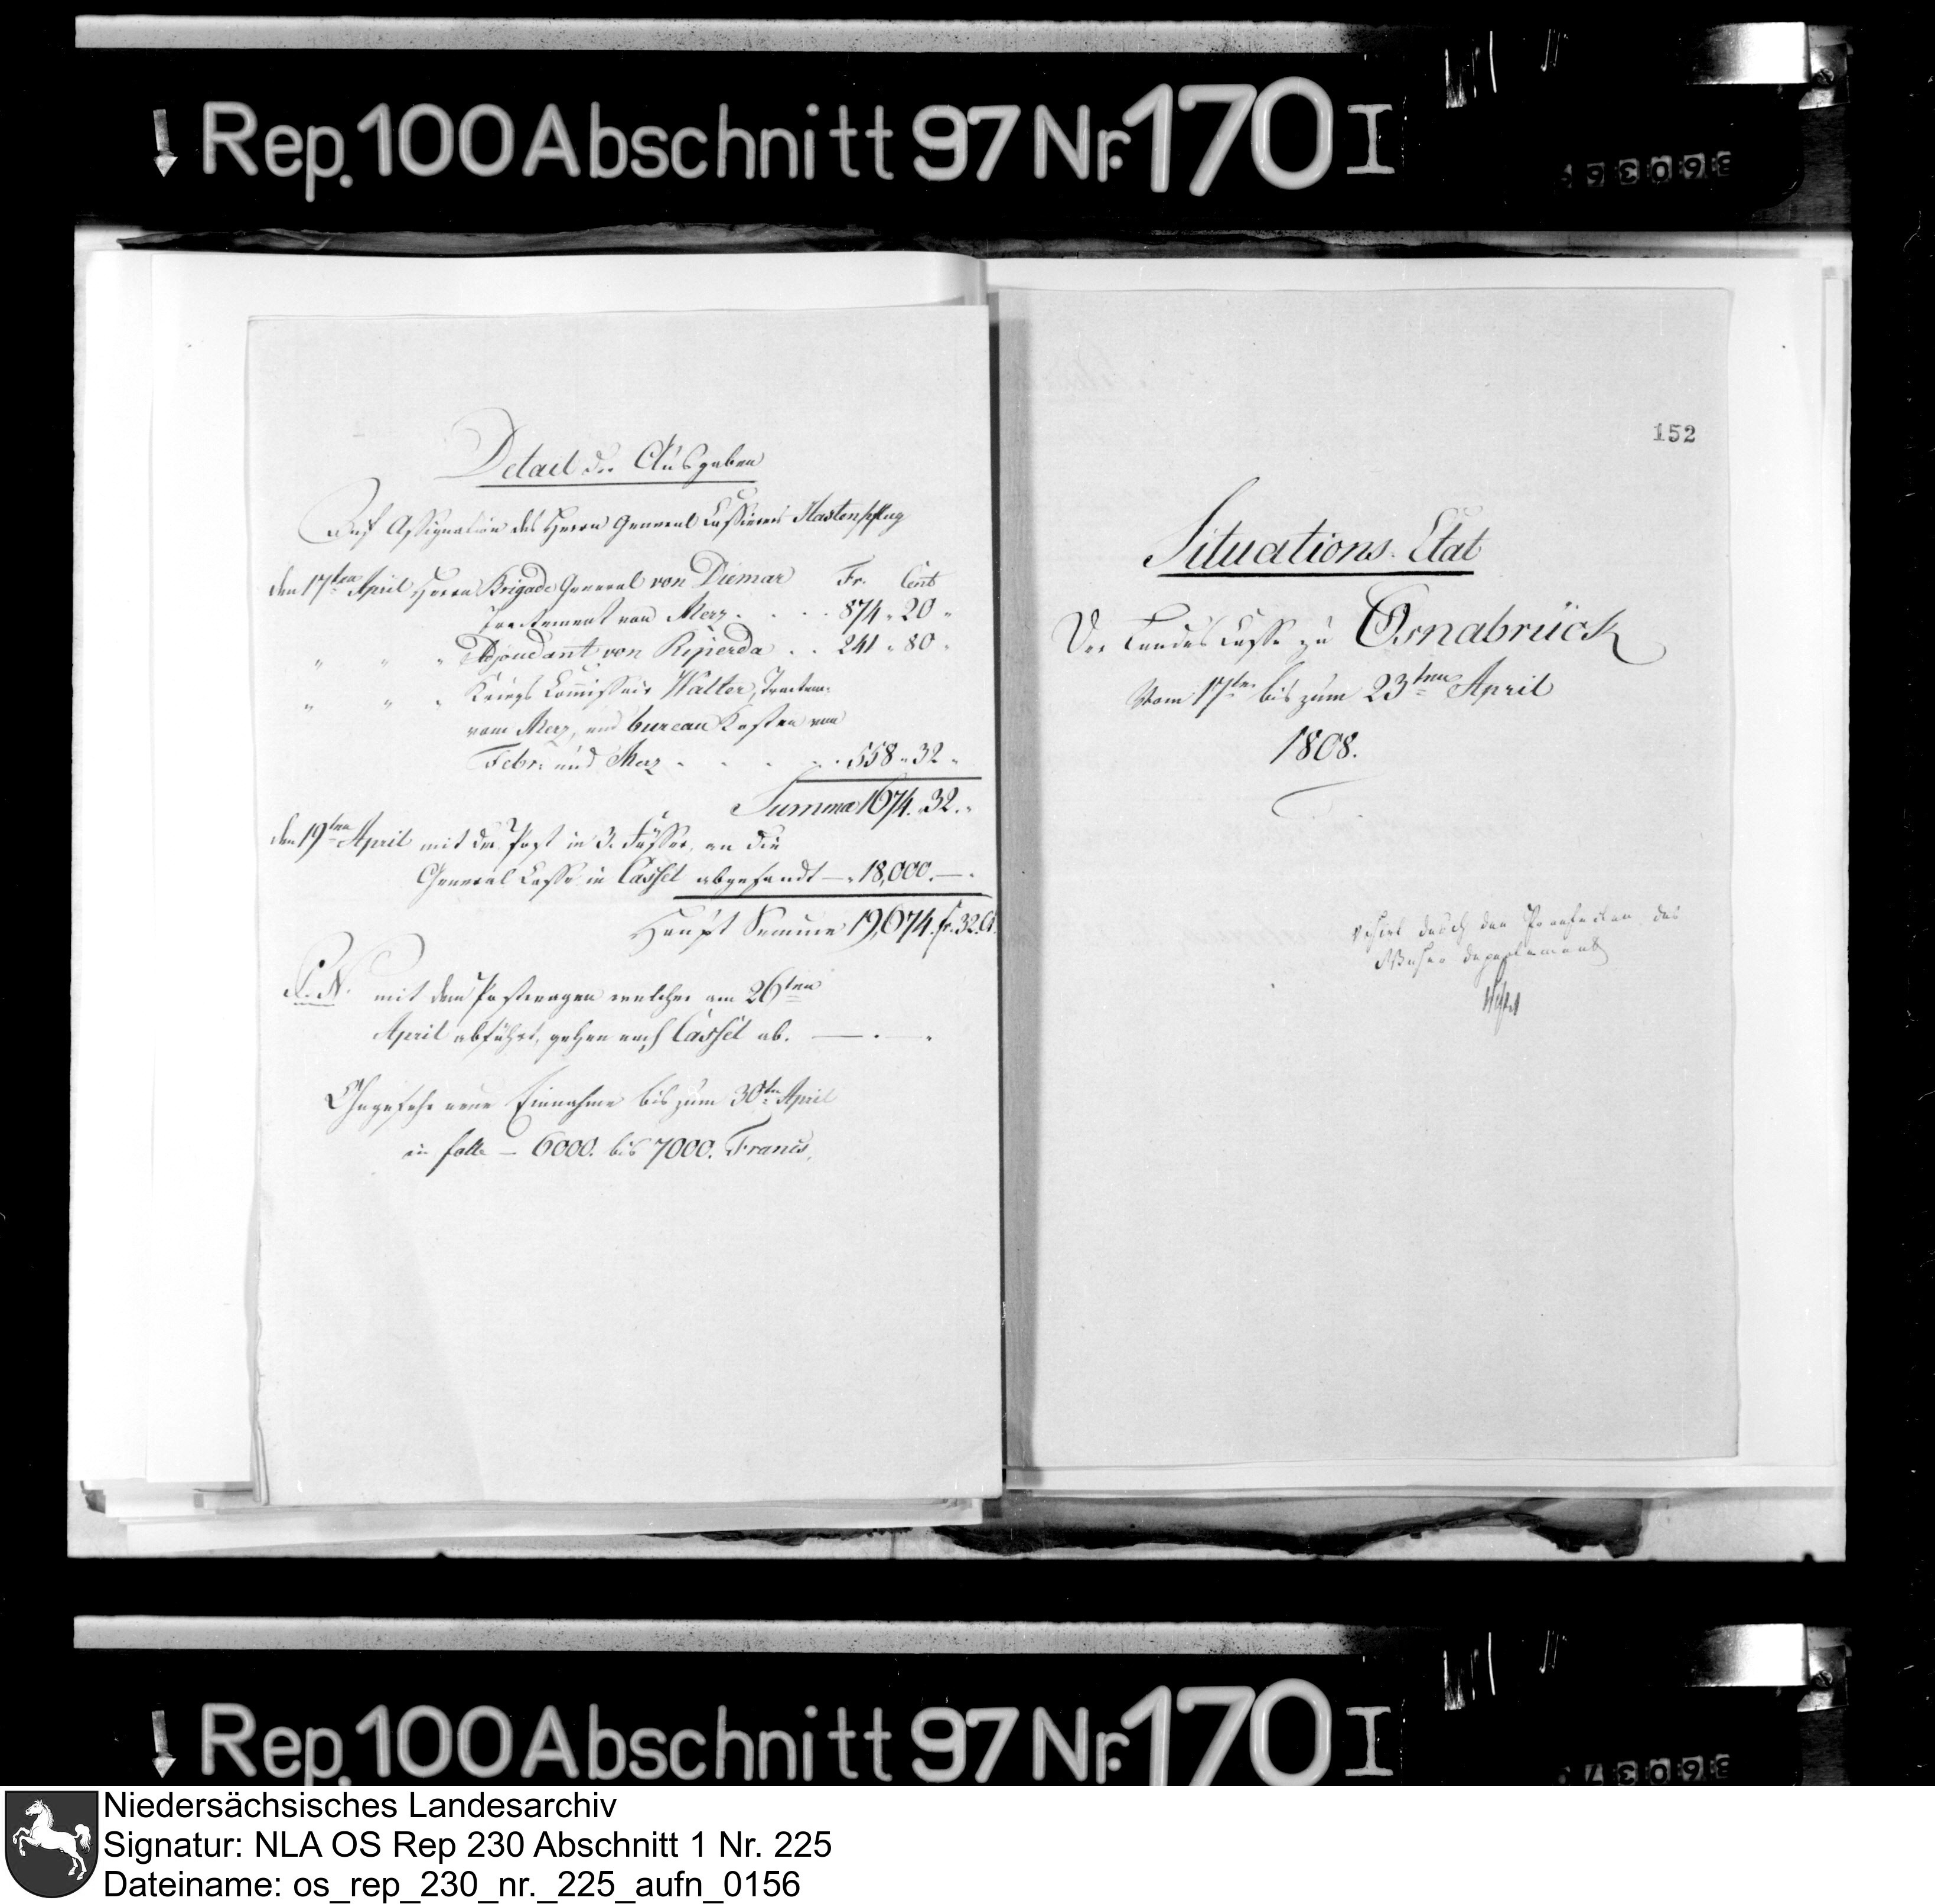 Rep. 100 Abschnitt 97 Nr. 170 I
Detail der Ausgaben
Auf Assignation des Herrn General Cassierers Hastenpflug
den 17ten April Herrn Brigade General von Diemar Fr. Cent
Tractement von Merz . . . . 874 " 20 "
" " " Adjoudant von Ripperda . . 241 " 80 "
" " " Kriegs Commissair Walter, Tractem:
vom Merz, und bureau Kosten von
Febr: und Merz . . . . . 558 " 32 "
Summa 1674. " 32. "
den 19ten April mit der Post in 3. Fässer, an die
General Casse in Cassel abgesandt — " 18,000. — "
Haupt Summe 19,674. fr. 32. Ct.
P.N. mit dem Postwagen welcher am 26ten
April abfährt, gehen nach Cassel ab. — . — .
Ungefehr neue Einnahme bis zum 30ten April
6000. bis 7000. Francs.
152
Situations-Etat
Der Landes Casse zu Osnabrück
Vom 17ten bis zum 23ten April
1808.
visirt durch den Praefecten des
Weser departements
Rep. 100 Abschnitt 97 Nr. 170 I
Niedersächsisches Landesarchiv
Signatur: NLA OS Rep 230 Abschnitt 1 Nr. 225
Dateiname: os_rep_230_nr._225_aufn_0156